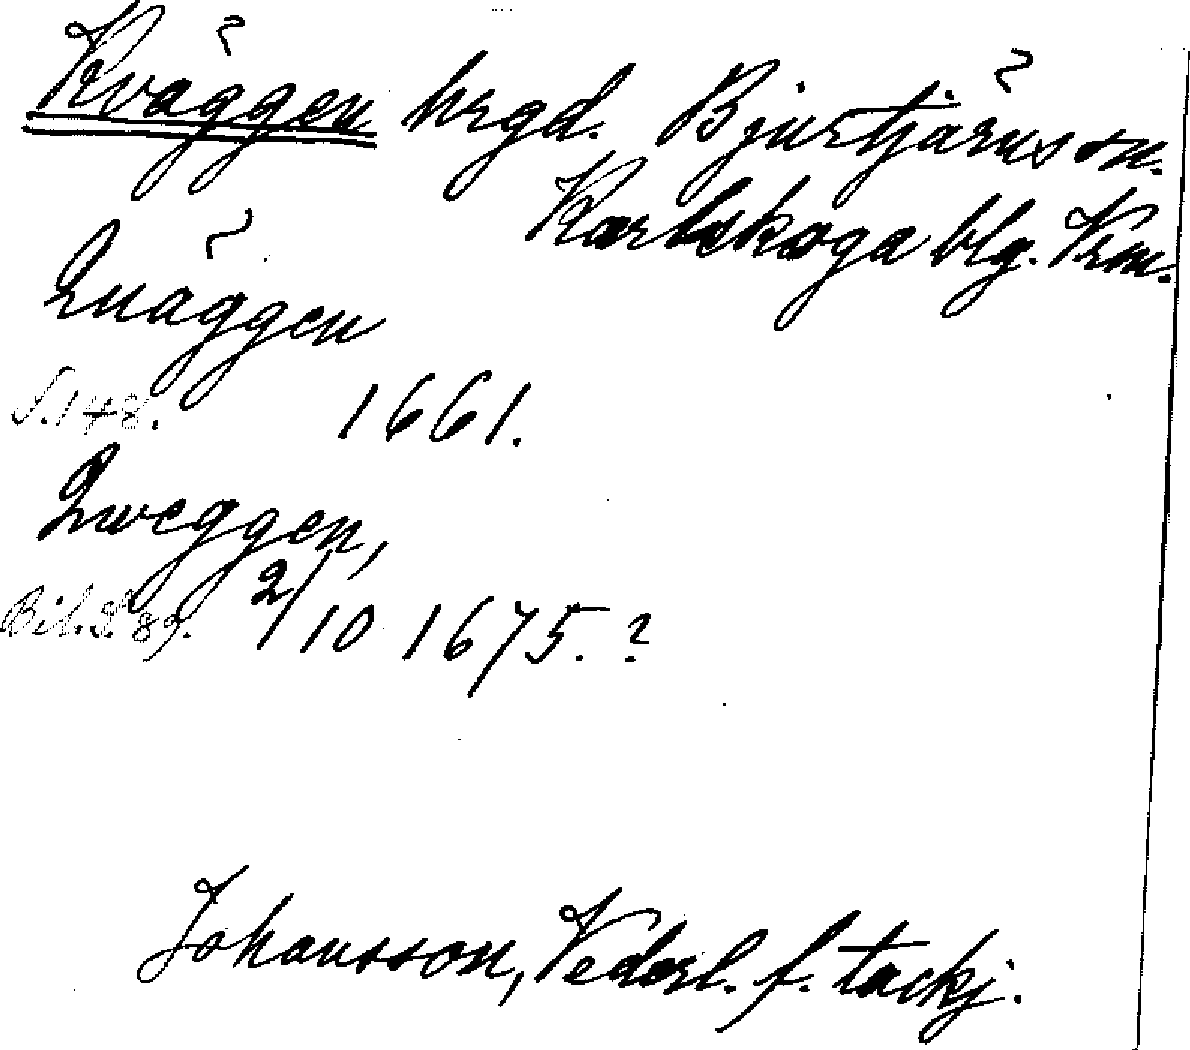 Kväggen hrgd. Bjurtjärns sn.
Karlskoga blg. Vrm.
Quäggen
S. 148. 1661.
Qweggen,
Bil. S. 89. 2/10 1675. ?
Johansson, Vederl. f. tackj.